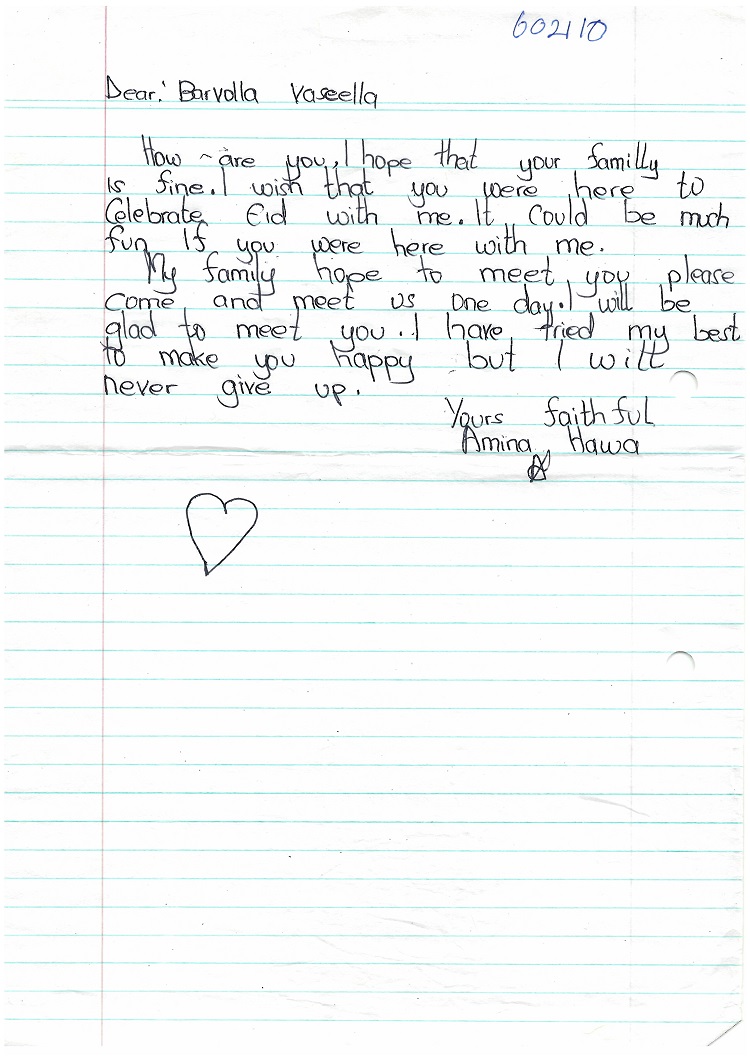 602110
Dear: Barvolla Vaseella
How ~ are you, I hope that your familly
is fine. I wish that you were here to
Celebrate Eid with me. It Could be much
fun If you were here with me.
My family hope to meet you please
come and meet us one day. I will be
glad to meet you. I have tried my best
to make you happy but I will
never give up.
Yours faithful
Amina Hawa